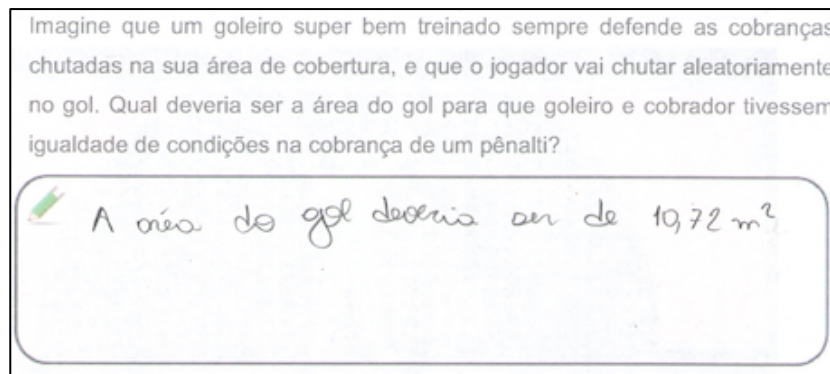 Imagine que um goleiro super bem treinado sempre defende as cobranças
chutadas na sua área de cobertura, e que o jogador vai chutar aleatoriamente
no gol. Qual deveria ser a área do gol para que goleiro e cobrador tivessem
igualdade de condições na cobrança de um pênalti?
A área do gol deveria ser de 10,72 m²